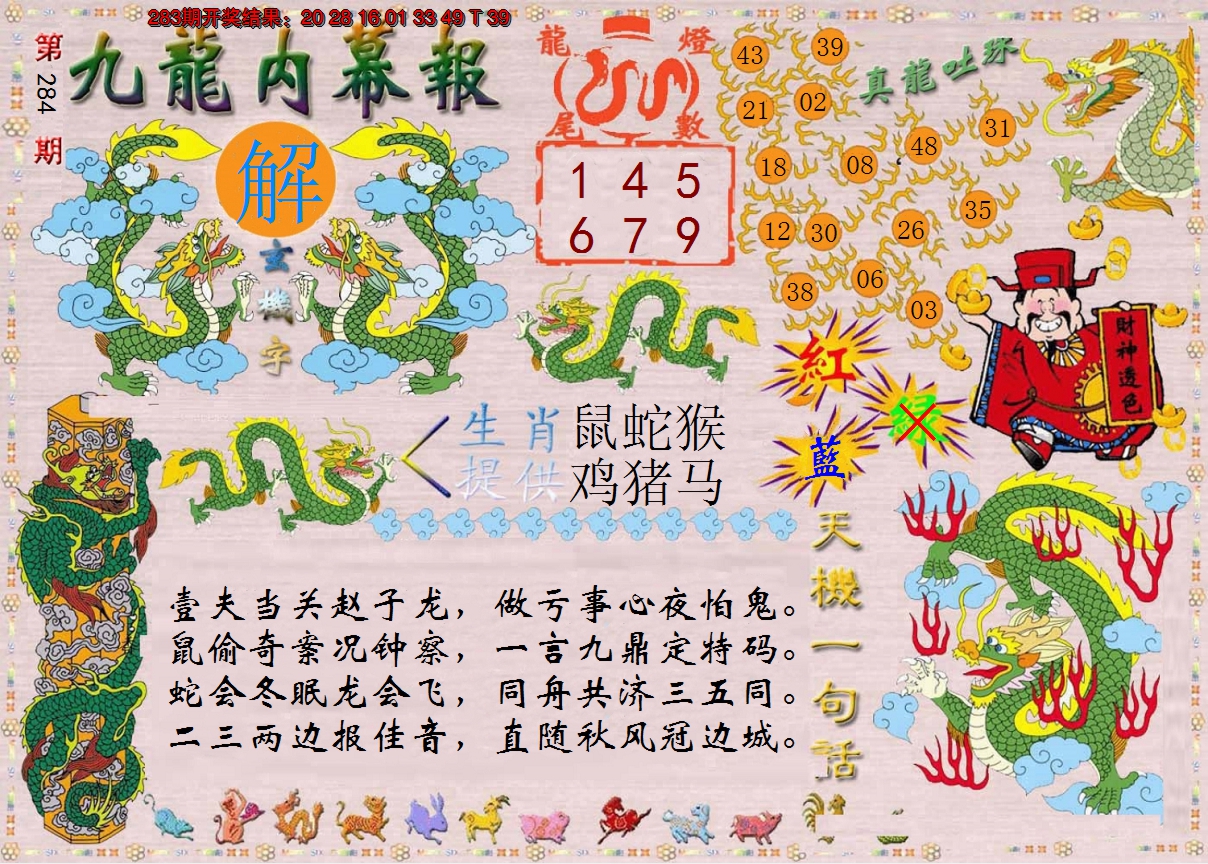 283期开奖结果：20 28 16 01 33 49 T 39
第284期
九龍内幕報
龍燈
尾數
1 4 5
6 7 9
真龍吐珠
43 39
21 02
18 08 48 31
12 30 26 35
38 06 03
解
玄機字
生肖 鼠蛇猴
提供 鸡猪马
紅
绿
藍
財神透色
天機一句話
壹夫当关赵子龙，做亏事心夜怕鬼。
鼠偷奇案况钟察，一言九鼎定特码。
蛇会冬眠龙会飞，同舟共济三五同。
二三两边报佳音，直随秋风冠边城。